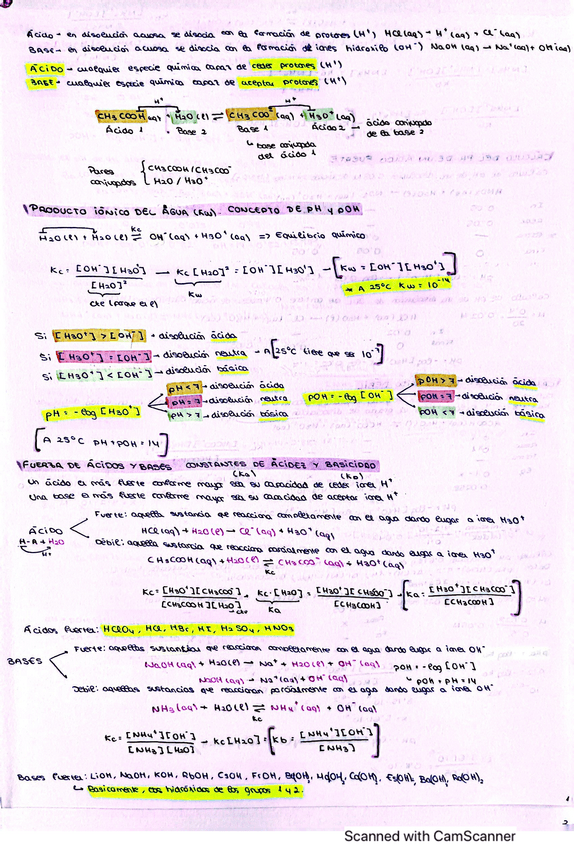 Ácido → en disolución acuosa se disocia con la formación de protones (H⁺) HCl(aq) → H⁺(aq) + Cl⁻(aq)
BASE → en disolución acuosa se disocia con la formación de iones hidroxilo (OH⁻) NaOH(aq) → Na⁺(aq) + OH⁻(aq)
ÁCIDO → cualquier especie química capaz de ceder protones (H⁺)
BASE → cualquier especie química capaz de aceptar protones (H⁺)
H⁺ H⁺
CH3COOH(aq) + H2O(l) ⇌ CH3COO⁻(aq) + H3O⁺(aq)
Ácido 1 Base 2 Base 1 Ácido 2 → ácido conjugado de la base 2
↳ base conjugada del ácido 1
Pares conjugados { CH3COOH/CH3COO⁻
H2O/H3O⁺
PRODUCTO IÓNICO DEL AGUA (Kw). CONCEPTO DE pH Y pOH
H2O(l) + H2O(l) ⇌ Kc OH⁻(aq) + H3O⁺(aq) => Equilibrio químico
Kc = [OH⁻][H3O⁺] / [H2O]² → Kc[H2O]² = [OH⁻][H3O⁺] → [Kw = [OH⁻][H3O⁺]]
Kw
A 25ºC Kw = 10⁻¹⁴
Si [H3O⁺] > [OH⁻] → disolución ácida
Si [H3O⁺] = [OH⁻] → disolución neutra → A 25ºC tiene que ser 10⁻⁷
Si [H3O⁺] < [OH⁻] → disolución básica
pH = -log [H3O⁺]
pH < 7 → disolución ácida
pH = 7 → disolución neutra
pH > 7 → disolución básica
pOH = -log [OH⁻]
pOH > 7 → disolución ácida
pOH = 7 → disolución neutra
pOH < 7 → disolución básica
[A 25ºC pH + pOH = 14]
FUERZA DE ÁCIDOS Y BASES CONSTANTES DE ACIDEZ Y BASICIDAD
(Ka) (Kb)
Un ácido es más fuerte conforme mayor sea su capacidad de ceder iones H⁺
Una base es más fuerte conforme mayor sea su capacidad de aceptar iones H⁺
ÁCIDO
H-A + H2O
H⁺
Fuerte: aquella sustancia que reacciona completamente con el agua dando lugar a iones H3O⁺
HCl(aq) + H2O(l) → Cl⁻(aq) + H3O⁺(aq)
Débil: aquella sustancia que reacciona parcialmente con el agua dando lugar a iones H3O⁺
CH3COOH(aq) + H2O(l) ⇌ Kc CH3COO⁻(aq) + H3O⁺(aq)
Kc = [H3O⁺][CH3COO⁻] / [CH3COOH][H2O] → Kc·[H2O] = [H3O⁺][CH3COO⁻] / [CH3COOH] → [Ka = [H3O⁺][CH3COO⁻] / [CH3COOH]]
Ka
Ácidos fuertes: HClO4, HCl, HBr, HI, H2SO4, HNO3
BASES
Fuerte: aquellas sustancias que reaccionan completamente con el agua dando lugar a iones OH⁻
NaOH(aq) + H2O(l) → Na⁺ + H2O(l) + OH⁻(aq) pOH = -log [OH⁻]
NaOH(aq) → Na⁺(aq) + OH⁻(aq) ↳ pOH + pH = 14
Débil: aquellas sustancias que reaccionan parcialmente con el agua dando lugar a iones OH⁻
NH3(aq) + H2O(l) ⇌ Kc NH4⁺(aq) + OH⁻(aq)
Kc = [NH4⁺][OH⁻] / [NH3][H2O] → Kc[H2O] = [Kb = [NH4⁺][OH⁻] / [NH3]]
Bases fuertes: LiOH, NaOH, KOH, RbOH, CsOH, FrOH, Be(OH)₂ Mg(OH)₂ Ca(OH)₂ Sr(OH)₂ Ba(OH)₂ Ra(OH)₂
↳ Básicamente, los hidróxidos de los grupos 1 y 2.
2
Scanned with CamScanner